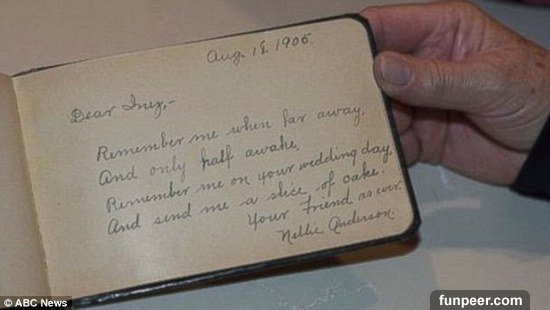 Aug. 18. 1905.
Dear Inez,-
Remember me when far away,
And only half awake,
Remember me on your wedding day,
And send me a slice of cake.
Your Friend as ever.
Nellie Anderson.
© ABC News
funpeer.com